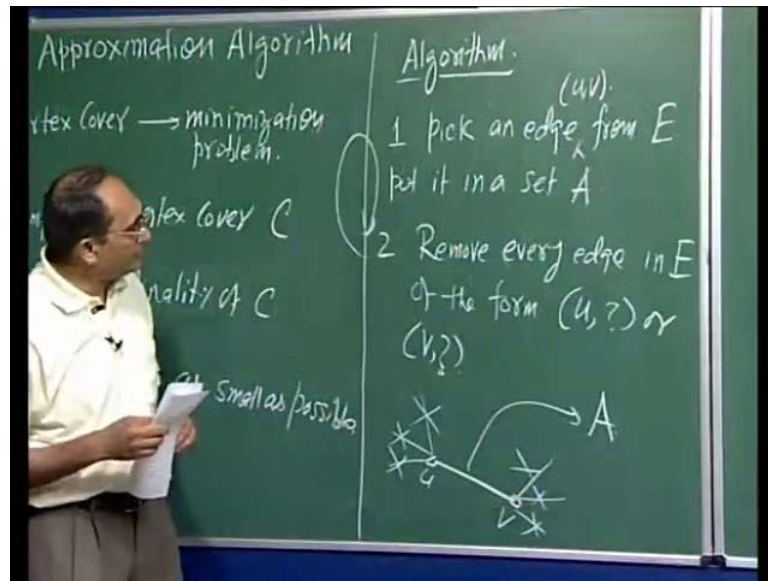 Approximation Algorithm
rtex Cover → minimization
problem.
tex Cover C
nality of C
small as possible
Algorithm.
(u,v).
1 pick an edge ^ from E
put it in a set A.
2 Remove every edge in E
of the form (u,?) or
(v,?)
A
u
v